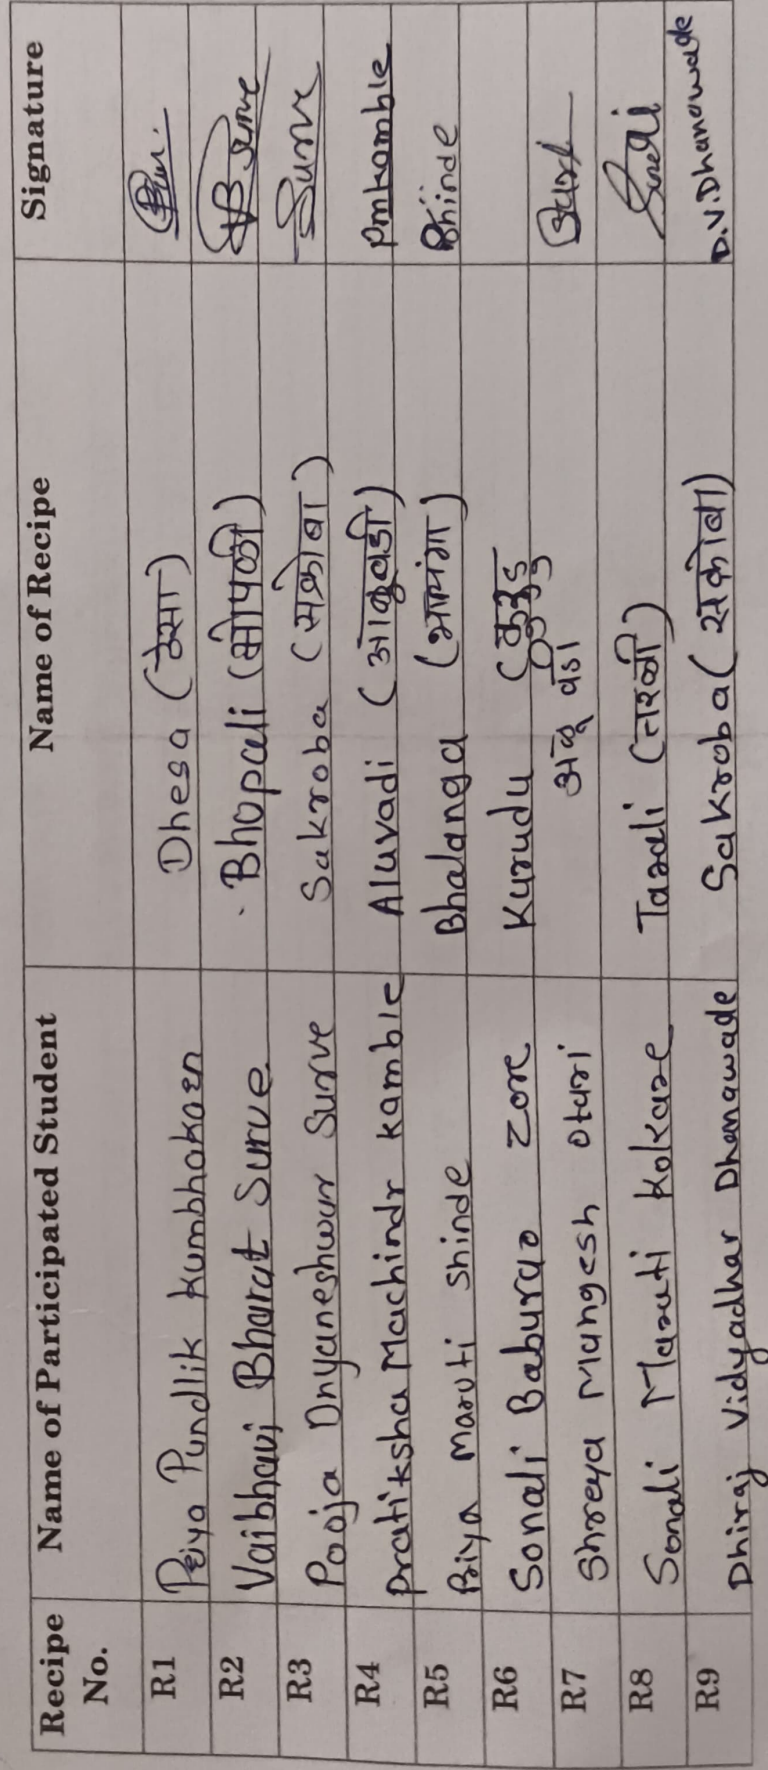 Recipe No. Name of Participated Student Name of Recipe Signature
R1 Priya Pundlik Kumbhakarn Dhesa (ठेसा)
R2 Vaibhavi Bharat Surve Bhopali (भोपळी) VBSurve
R3 Pooja Dnyaneshwar Surve Sakroba (सक्रोबा) Surve
R4 Pratiksha Machindr Kamble Aluvadi (आळूवडी) Pmkamble
R5 Priya Maruti Shinde Bhalanga (भालंगा) Shinde
R6 Sonali Baburao Zore Kurudu (कुरुडु
R7 Shreya Mangesh Otari अळू वडा
R8 Sonali Maruti Kolkare Tarali (तरळी)
R9 Dhiraj Vidyadhar Dhanawade Sakroba (सक्रोबा) D.V.Dhanawade